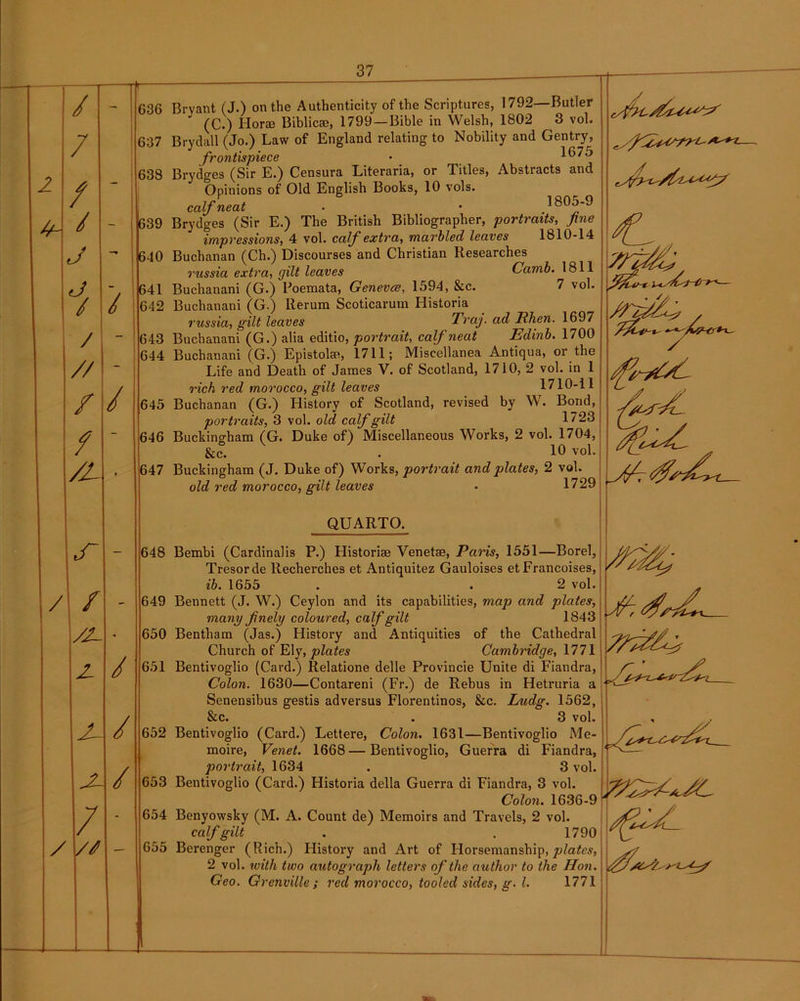 37
636 Bryant (J.) on the Authenticity of the Scriptures, 1792—Butler
(C.) Horæ Biblicæ, 1799—Bible in Welsh, 1802 3 vol.
637 Brydall (Jo.) Law of England relating to Nobility and Gentry,
frontispiece . 1675
638 Brydges (Sir E.) Censura Literaria, or Titles, Abstracts and
Opinions of Old English Books, 10 vols.
calf neat . . 1805-9
639 Brydges (Sir E.) The British Bibliographer, portraits, fine
impressions, 4 vol. calf extra, marbled leaves 1810-14
640 Buchanan (Ch.) Discourses and Christian Researches
russia extra, gilt leaves Camb. 1811
641 Buchanani (G.) Poemata, Genevæ, 1594, &c. 7 vol.
642 Buchanani (G.) Rerum Scoticarum Historia
russia, gilt leaves Traj. ad Rhen. 1697
643 Buchanani (G.) alia editio, portrait, calf neat Edinb. 1700
644 Buchanani (G.) Epistolæ, 1711; Miscellanea Antiqua, or the
Life and Death of James V. of Scotland, 1710, 2 vol. in 1
rich red morocco, gilt leaves 1710-11
645 Buchanan (G.) History of Scotland, revised by W. Bond,
portraits, 3 vol. old calf gilt 1723
646 Buckingham (G. Duke of) Miscellaneous Works, 2 vol. 1704,
&c. . 10 vol.
647 Buckingham (J. Duke of) Works, portrait and plates, 2 vol.
old red morocco, gilt leaves . 1729
QUARTO.
648 Bembi (Cardinalis P.) Historiæ Venetæ, Paris, 1551—Borel,
Tresor de Recherches et Antiquitez Gauloises et Francoises,
ib. 1655 . . 2 vol.
649 Bennett (J. W.) Ceylon and its capabilities, map and plates,
many finely coloured, calf gilt 1843
650 Bentham (Jas.) History and Antiquities of the Cathedral
Church of Ely, plates Cambridge, 1771
651 Bentivoglio (Card.) Relatione delle Provincie Unite di Fiandra,
Colon. 1630—Contareni (Fr.) de Rebus in Hetruria a
Senensibus gestis adversus Florentinos, &c. Ludg. 1562,
&c. . 3 vol.
652 Bentivoglio (Card.) Lettere, Colon. 1631—Bentivoglio Me-
moire, Venet. 1668—Bentivoglio, Guerra di Fiandra,
portrait, 1634 . 3 vol.
653 Bentivoglio (Card.) Historia della Guerra di Fiandra, 3 vol.
Colon. 1636-9
654 Benyowsky (M. A. Count de) Memoirs and Travels, 2 vol.
calf gilt . . 1790
655 Berenger (Rich.) History and Art of Horsemanship, plates,
2 vol. with two autograph letters of the author to the Hon.
Geo. Grenville; red morocco, tooled sides, g. l. 1771